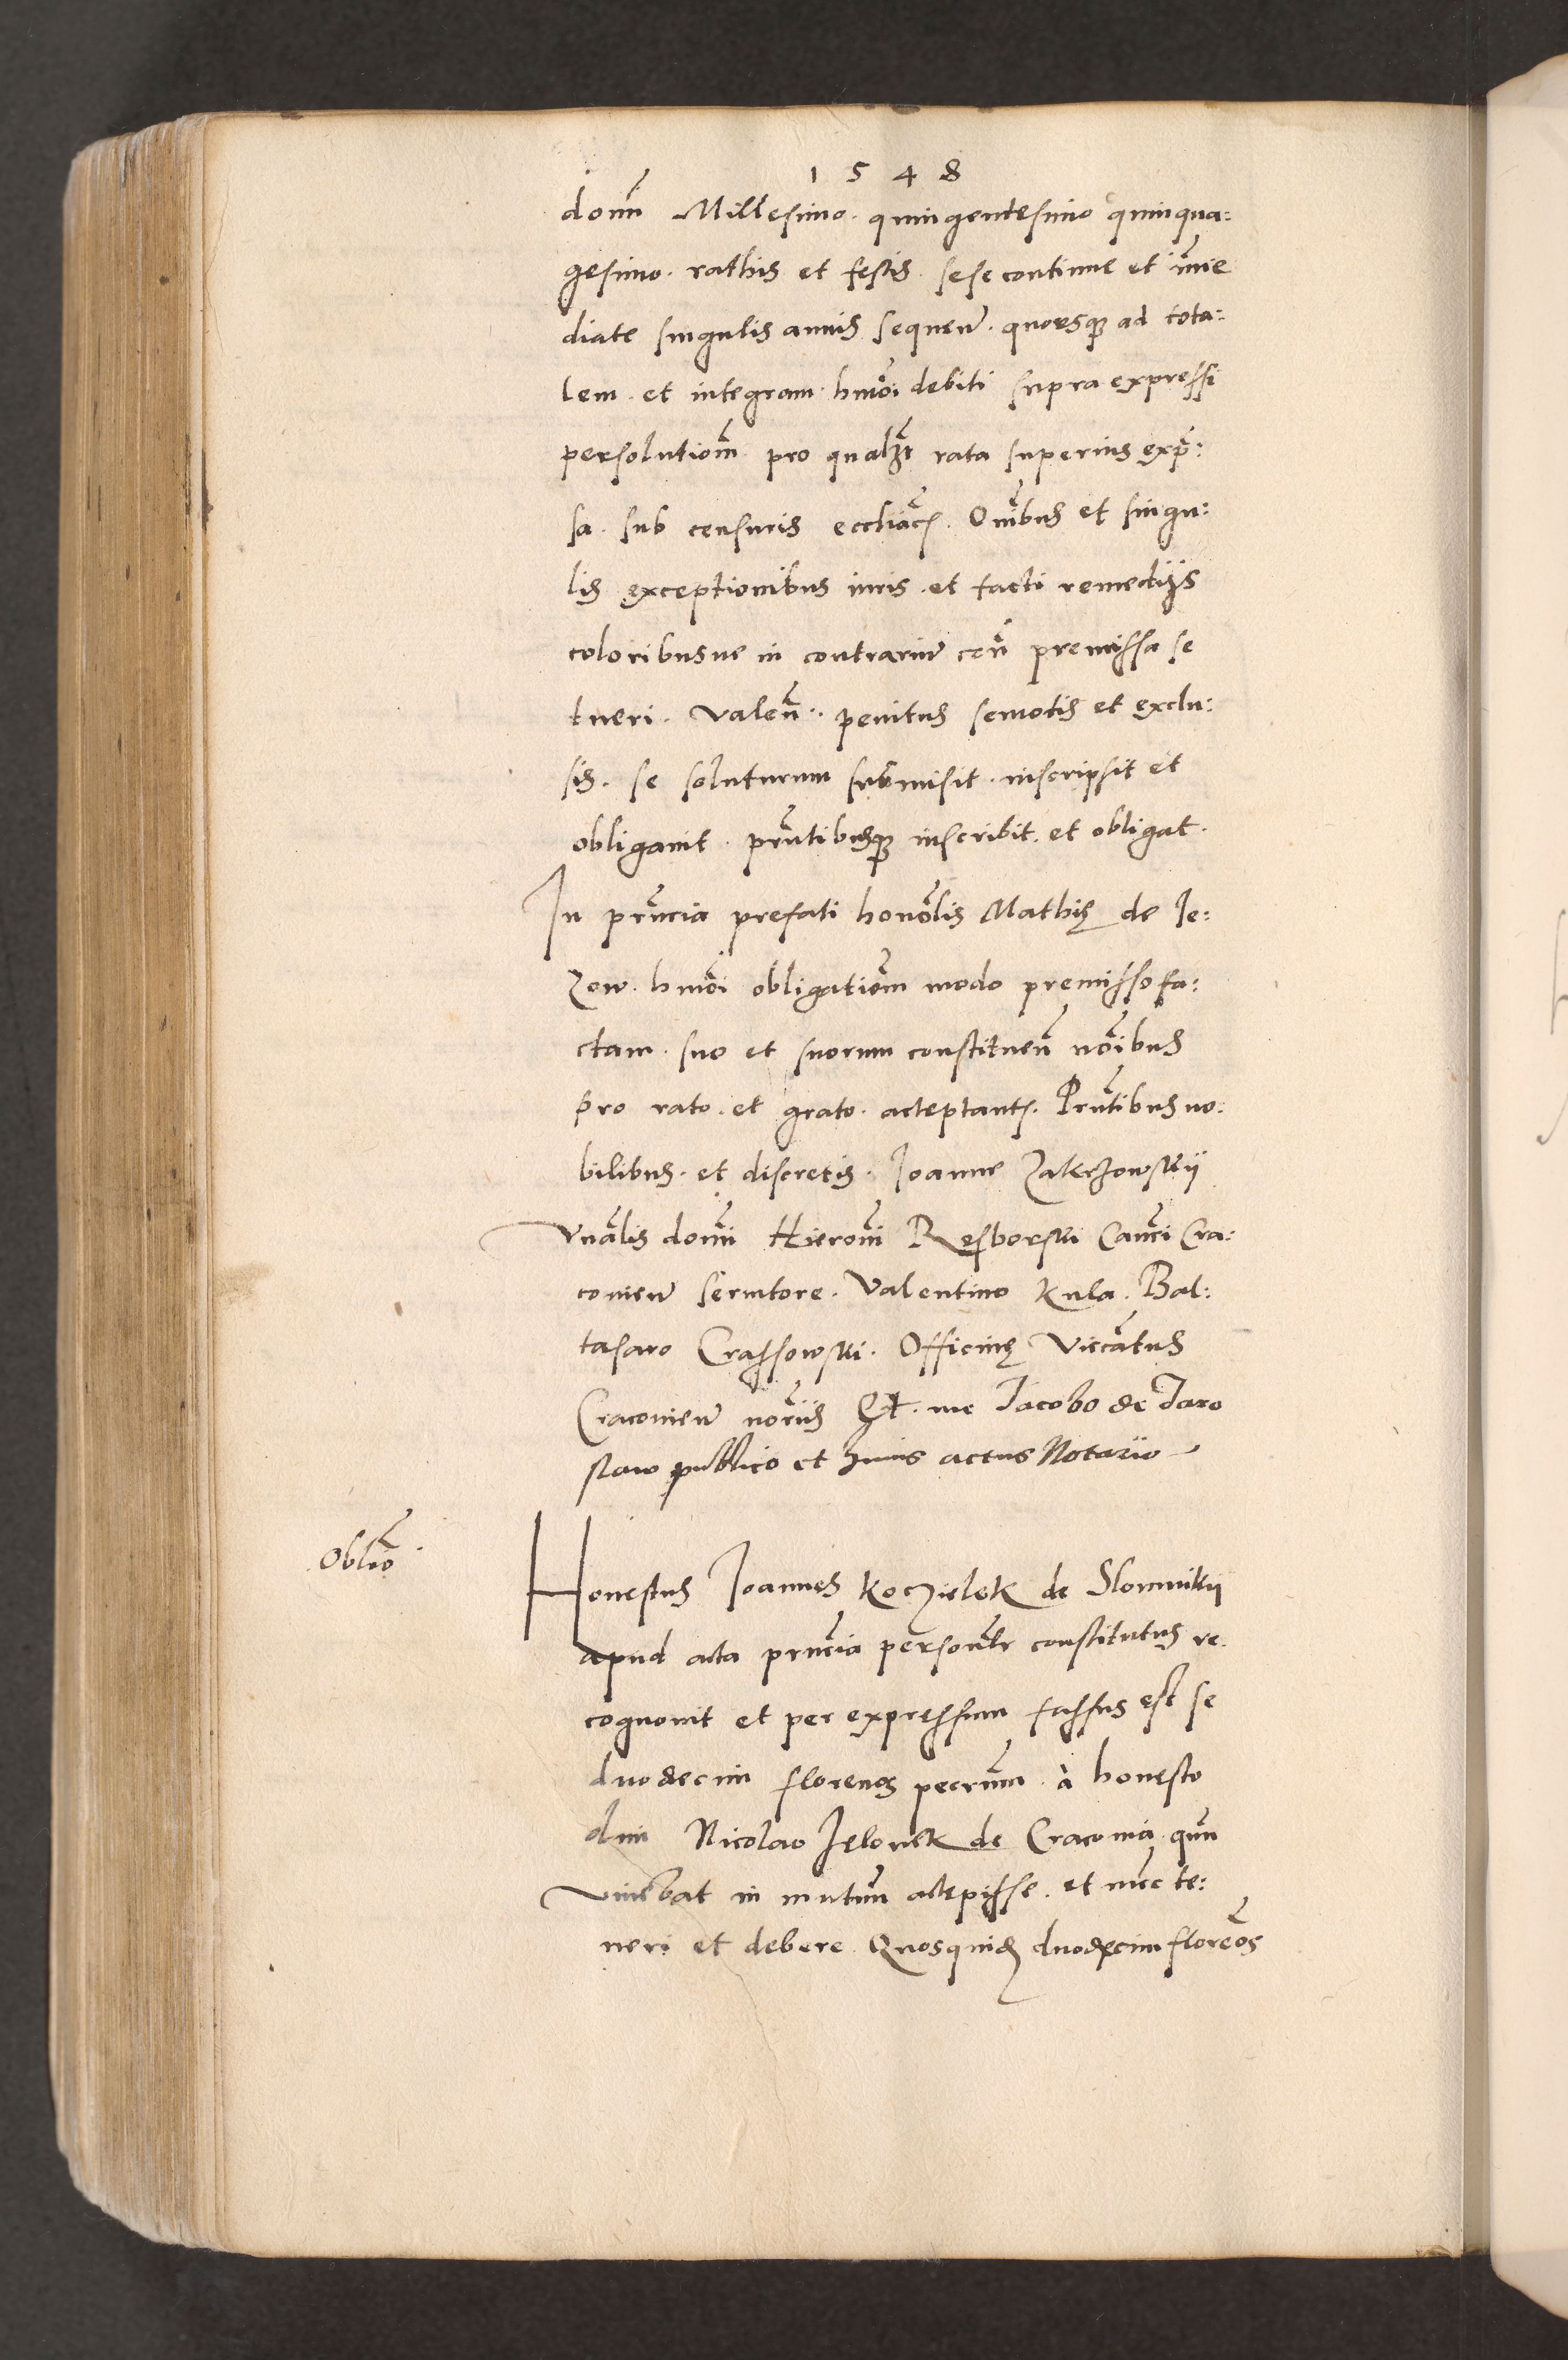 1548
domi Millesimo quingentesimo quinqua:
gesimo. rathis et festis. sese continue et imme
diate singulis annis sequen. quousque ad tota:
lem. et integram. hmoi debiti supra expressi
persolutiom pro qualzt rata superius expr:
sa. sub censuris eccliacis. Omibus et singu:
lis exceptionibus iuris. et facti remedijs
coloribusue in contrarium cen premissa se
tueri. valen. penitus semotis et exclu:
sis. se soluturum submisit. inscripsit et
obligauit. prntibusque inscribit. et obligat.
In prncia prefati honorlis Mathię de Ie:
zow. hmoi obligatiom modo premisso fa:
ctam. suo et suorum constituen noibus
pro rato. et grato. acceptantis. Prntibus no:
bilibus. et discretis. Ioanne Zakrzowskij
Vnalis domi Hieronimi Resborski Canci Cra:
couien seruitore. Valentino Kula. Bal:
tasaro Crassowski. Officinę Vicatus
Cracouien norijs Et. me Jacobo de Jaro
slaw publico et huius actus Notario
Oblio.
Honestus Ioannes Koczielek de Slomnikij
apud acta prncia personalr constitutus re.
cognouit et per expressum fassus est se
duodecim florenos pecrum. à honesto
olim Nicolao Jelonek de Cracouia. qum
viuebat in mutum accepisse. et nunc te:
neri et debere Quosquidem duodecim florenos